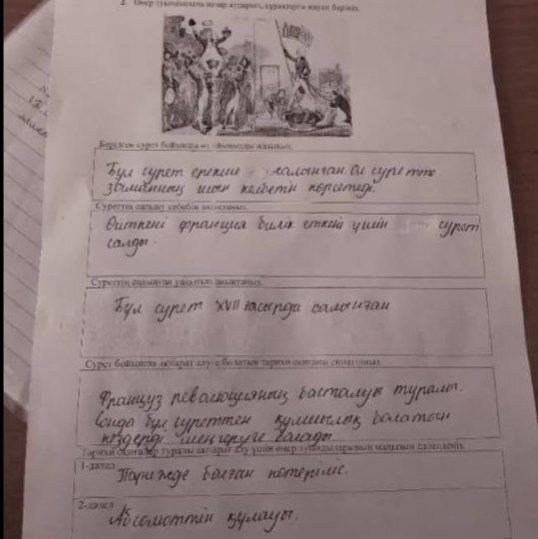 2. Өнер туындысына назар аударып, сұрақтарға жауап беріңіз.
Берілген сурет бойынша өз ойыңызды жазыңыз.
Бұл сурет ерекше салынған. Ол суретте
заманның шын келбетін көрсетеді.
Суреттің салыну себебін анықтаңыз.
Өйткені франция билік еткені үшін сурет
салды.
Суреттің салынған уақытын анықтаңыз.
Бұл сурет XVII ғасырда салынған
Сурет бойынша ақпарат алуға болатын тарихи оқиғаны сипаттаңыз.
Француз революцияның басталуы туралы.
Сонда бұл суреттен құлшылық болатын
кездерді меңгеруге болады
Тарихи оқиғалар туралы ақпарат алу үшін өнер туындыларының маңызын дәлелдеңіз.
1-дәлел
Парижде болған көтеріліс.
2-дәлел
Абсолюттің құлауы.